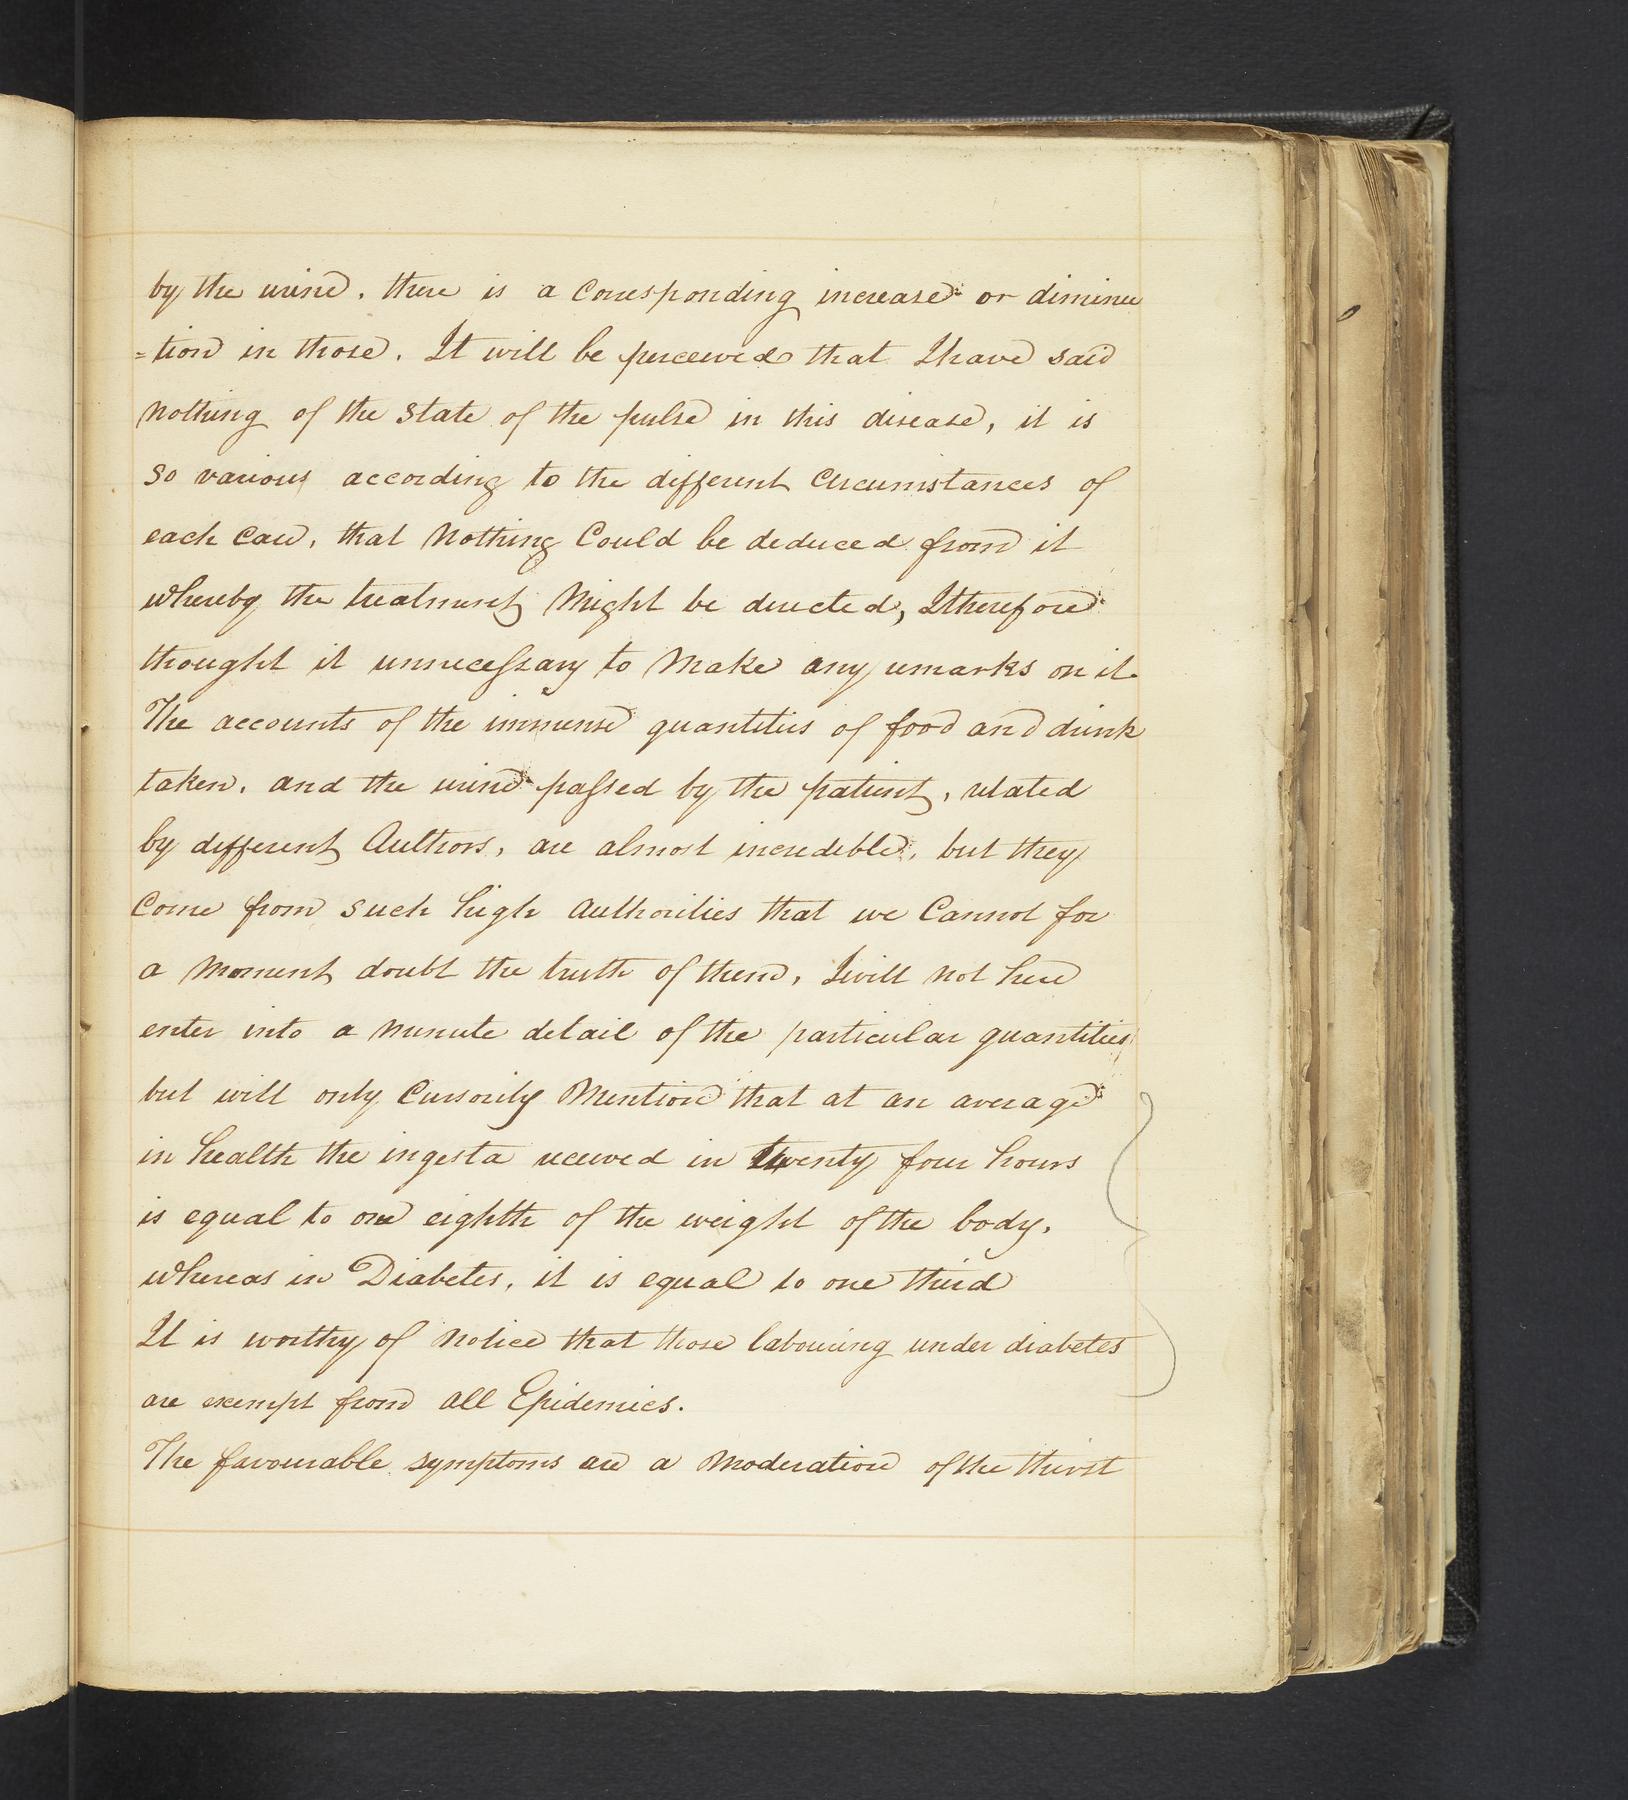 by the urine. there is a corresponding increase or diminu
=tion in those. It will be perceived that I have said
nothing of the state of the pulse in this disease, it is
so various according to the different Circumstances of
each case, that Nothing Could be deduced from it
whereby the treatment Might be directed, I therefore
thought it unnecessary to Make any remarks on it.
The accounts of the immense quantities of food and drink
taken. and the urine passed by the patient, related
by different Authors, are almost incredible. but they
Come from such high Authorities that we Cannot for
a Moment doubt the truth of them. I will not here
enter into a minute detail of the particular quantities
but will only Cursorily Mention that at an average
in health the ingesta received in twenty four hours
is equal to one eighth of the weight of the body.
whereas in Diabetes, it is equal to one third
It is worthy of Notice that those labouring under diabetes
are exempt from all Epidemics.
The favourable symptoms are a Moderation of the thirst